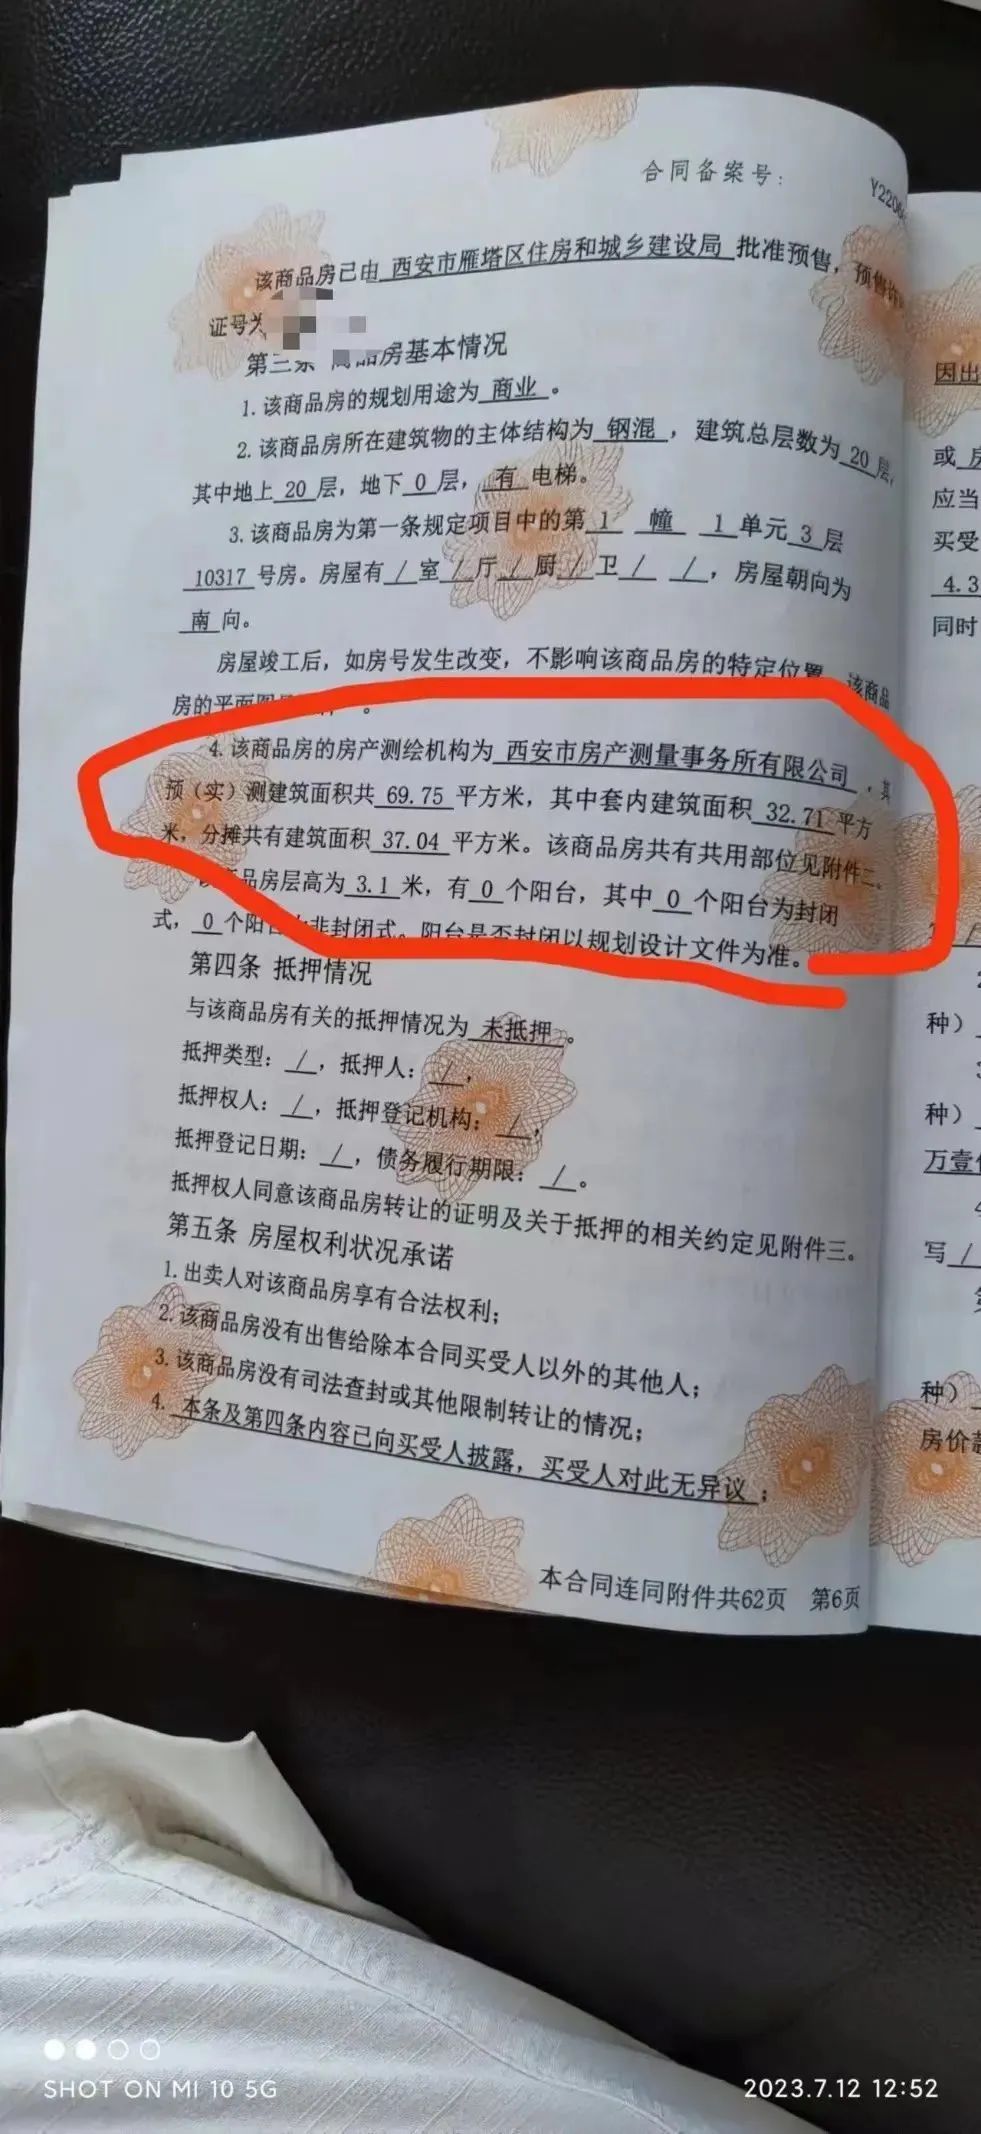 合同备案号：
Y2206
该商品房已由 西安市雁塔区住房和城乡建设局 批准预售，预售许
证号为
第三条 商品房基本情况
1.该商品房的规划用途为 商业 。
2.该商品房所在建筑物的主体结构为 钢混 ，建筑总层数为 20 层，
其中地上 20 层，地下 0 层， 有 电梯。
3.该商品房为第一条规定项目中的第 1 幢 1 单元 3 层
10317 号房。房屋有 / 室 / 厅 / 厨 / 卫 / / ，房屋朝向为
南 向。
房屋竣工后，如房号发生改变，不影响该商品房的特定位置 该商品
房的平面图
4.该商品房的房产测绘机构为 西安市房产测量事务所有限公司 ，其
预（实）测建筑面积共 69.75 平方米，其中套内建筑面积 32.71 平方
米，分摊共有建筑面积 37.04 平方米。该商品房共有共用部位见附件二。
该商品房层高为 3.1 米，有 0 个阳台，其中 0 个阳台为封闭
式， 0 个阳台为非封闭式。阳台是否封闭以规划设计文件为准。
第四条 抵押情况
与该商品房有关的抵押情况为 未抵押 。
抵押类型： / ，抵押人： / ，
抵押权人： / ，抵押登记机构： / ，
抵押登记日期： / ，债务履行期限： / 。
抵押权人同意该商品房转让的证明及关于抵押的相关约定见附件三。
第五条 房屋权利状况承诺
1.出卖人对该商品房享有合法权利；
2.该商品房没有出售给除本合同买受人以外的其他人；
3.该商品房没有司法查封或其他限制转让的情况；
4. 本条及第四条内容已向买受人披露，买受人对此无异议 ；
本合同连同附件共62页 第6页
因出
或 房
应当
买受
4.3
同时
种）
种）
万壹
写 /
种）
房价款
SHOT ON MI 10 5G
2023.7.12 12:52